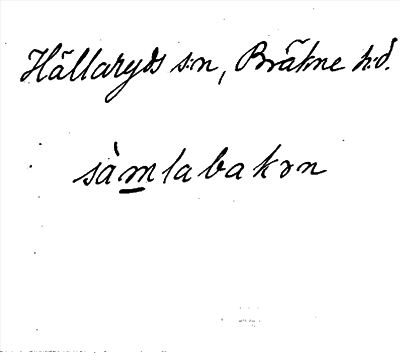 Hällaryds s:n, Bräkne h:d.
sàmlabakɤn